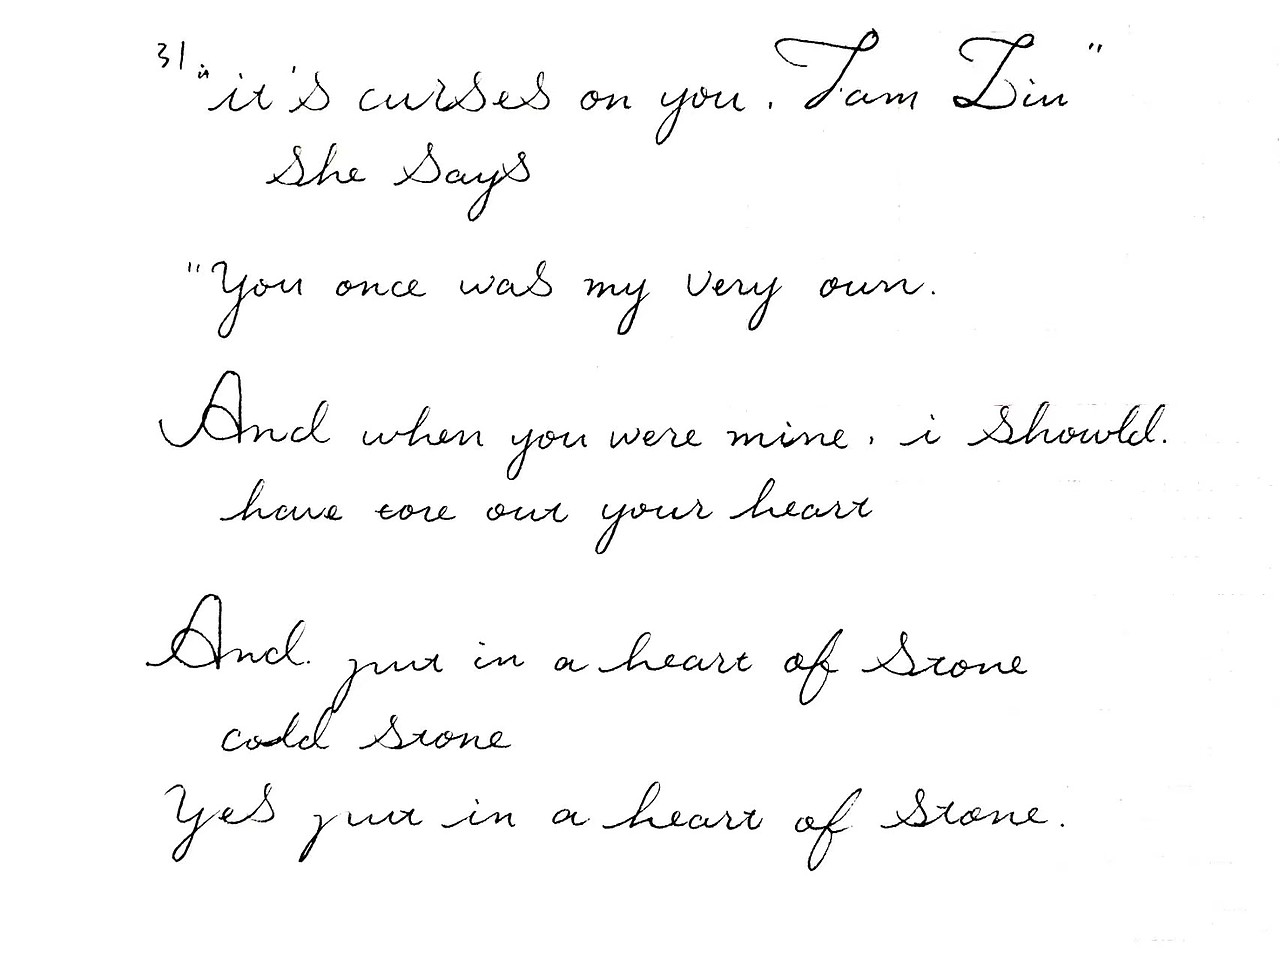 31 "it's curses on you. Tam Lin"
she says
"You once was my very own.
And when you were mine. i should.
have tore out your heart
And. put in a heart of stone
cold stone
Yes put in a heart of stone.